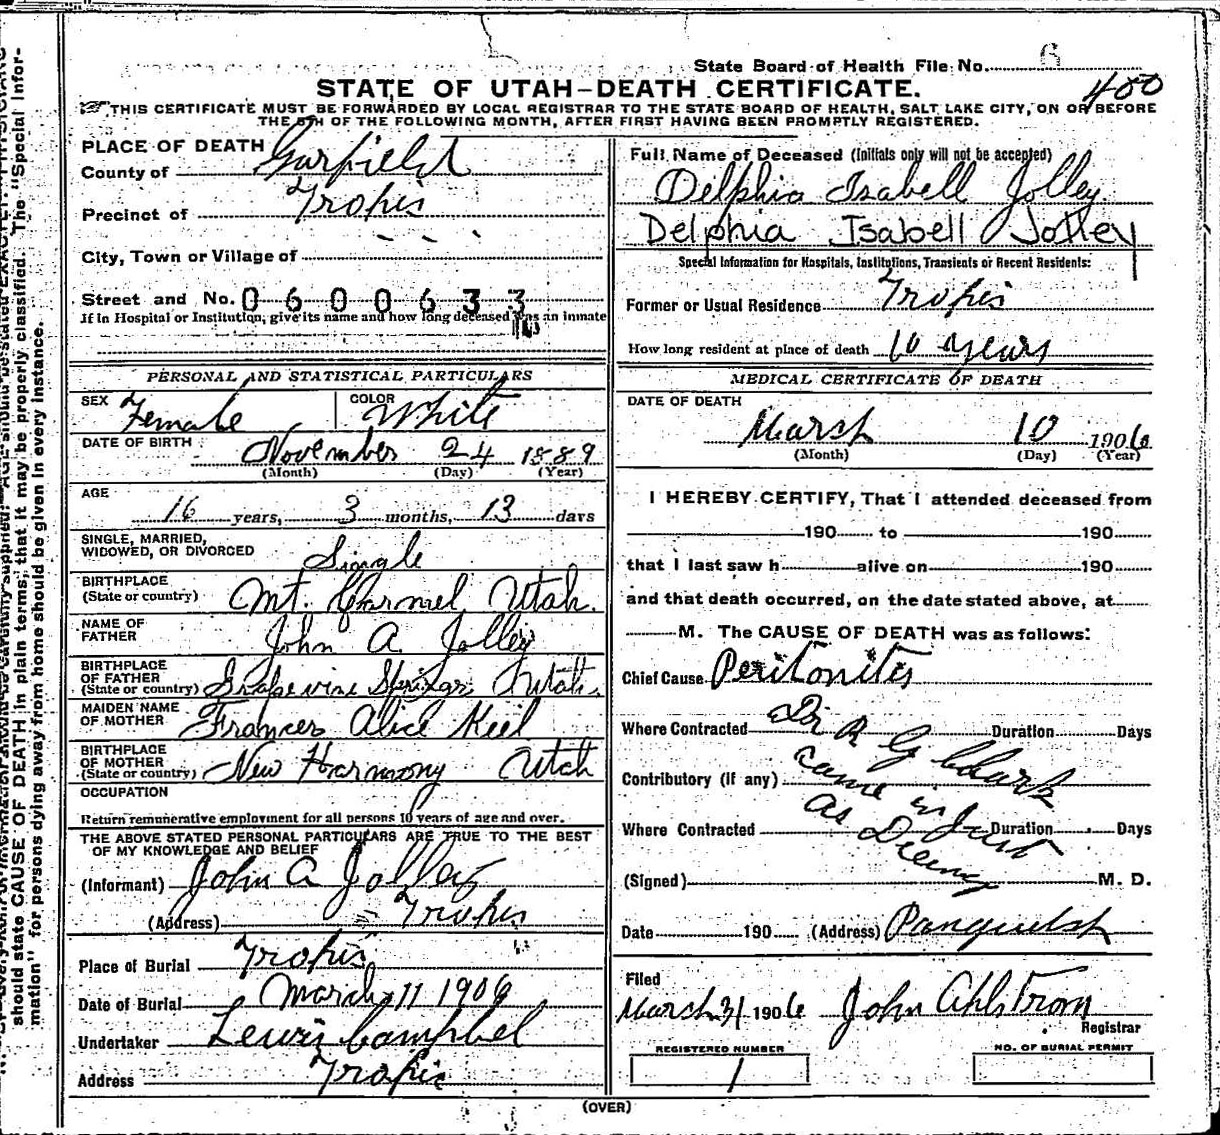 State Board of Health File No. 6
STATE OF UTAH-DEATH CERTIFICATE.
400
THIS CERTIFICATE MUST BE FORWARDED BY LOCAL REGISTRAR TO THE STATE BOARD OF HEALTH, SALT LAKE CITY, ON OR BEFORE
THE 5TH OF THE FOLLOWING MONTH, AFTER FIRST HAVING BEEN PROMPTLY REGISTERED.
PLACE OF DEATH
County of Garfield
Precinct of Tropic
City, Town or Village of
Street and No. 0600633
If in Hospital or Institution, give its name and how long deceased was an inmate
PERSONAL AND STATISTICAL PARTICULARS
SEX Female COLOR White
DATE OF BIRTH November 24 1889
(Month) (Day) (Year)
AGE
16 years, 3 months, 13 days
SINGLE, MARRIED,
WIDOWED, OR DIVORCED Single
BIRTHPLACE
(State or country) Mt. Carmel, Utah.
NAME OF
FATHER John A. Jolley
BIRTHPLACE
OF FATHER
(State or country) Grapevine Springs, Utah.
MAIDEN NAME
OF MOTHER Frances Alice Keel
BIRTHPLACE
OF MOTHER
(State or country) New Harmony Utah
OCCUPATION
Return remunerative employment for all persons 10 years of age and over.
THE ABOVE STATED PERSONAL PARTICULARS ARE TRUE TO THE BEST
OF MY KNOWLEDGE AND BELIEF
(Informant) John A Jolley
(Address) Tropic
Place of Burial Tropic
Date of Burial March 11 1906
Undertaker Lewis Campbel
Address Tropic
Full Name of Deceased (Initials only will not be accepted)
Delphia Isabell Jolley
Delphia Isabell Jolley
Special Information for Hospitals, Institutions, Transients or Recent Residents:
Former or Usual Residence Tropic
How long resident at place of death 10 years
MEDICAL CERTIFICATE OF DEATH
DATE OF DEATH
March 10 1906
(Month) (Day) (Year)
I HEREBY CERTIFY, That I attended deceased from
190 to 190
that I last saw h alive on 190
and that death occurred, on the date stated above, at
M. The CAUSE OF DEATH was as follows:
Chief Cause Peritonites
Where Contracted Duration Days
Dr R G Clark
Contributory (if any)
came in Just
Where Contracted Duration Days
as Dieing
(Signed) M. D.
Date 190 (Address) Panguitch
Filed
March 31 1906 John Ahlstrom
Registrar
REGISTERED NUMBER
1
NO. OF BURIAL PERMIT
(OVER)
should state CAUSE OF DEATH in plain terms, that it may be properly classified. The "Special Infor-
mation" for persons dying away from home should be given in every instance.